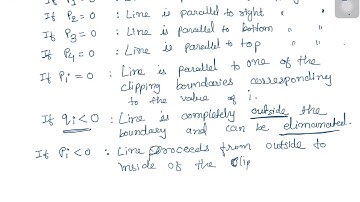 If P2 = 0 : Line is parallel to right " "
If P3 = 0 : Line is parallel to bottom " "
If P4 = 0 : Line is parellel to top " "
If Pi = 0 : Line is parallel to one of the
clipping boundaries corresponding
to the value of i.
If qi < 0 : Line is completely outside the
boundary and can be elimamated.
If Pi < 0 : Line proceeds from outside to
inside of the Clip